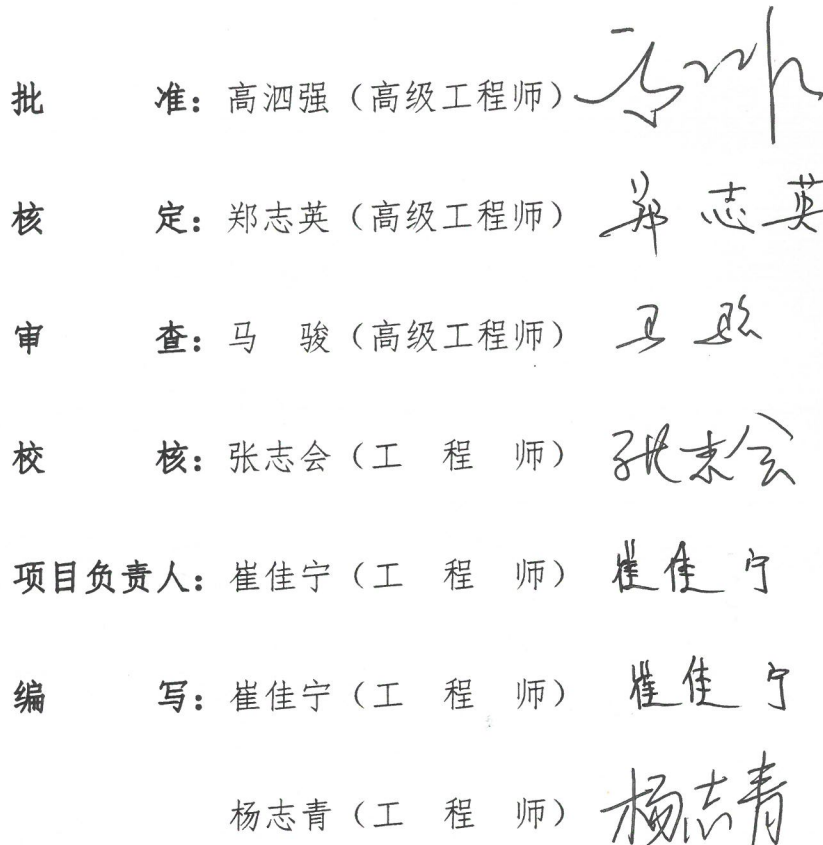 批　　　准：高泗强（高级工程师）
核　　　定：郑志英（高级工程师） 郑志英
审　　　查：马　骏（高级工程师） 马骏
校　　　核：张志会（工　程　师） 张志会
项目负责人：崔佳宁（工　程　师） 崔佳宁
编　　　写：崔佳宁（工　程　师） 崔佳宁
杨志青（工　程　师） 杨志青